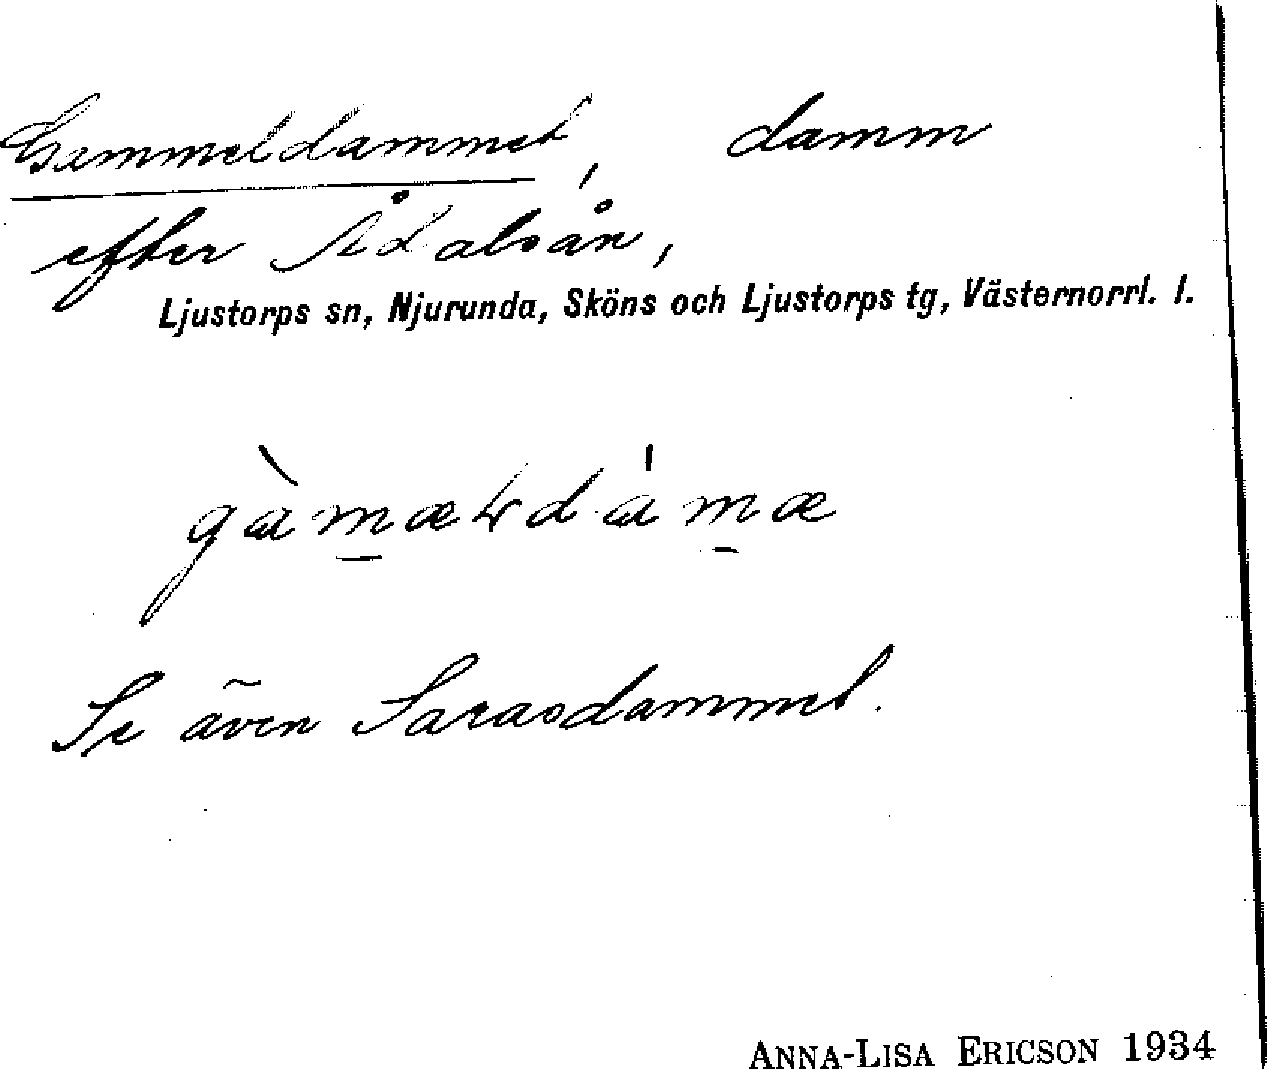 Gammeldammet, damm
efter Ådalsån,
Ljustorps sn, Njurunda, Sköns och Ljustorps tg, Västernorrl. l.
Se även Sarasdammet.
ANNA-LISA ERICSON 1934